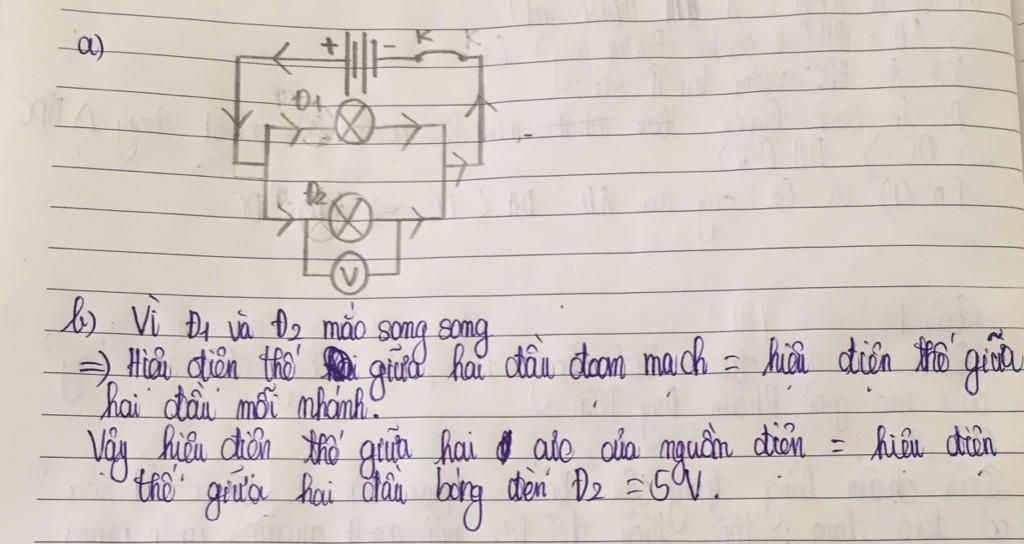 a)
+ - K
Đ1
Đ2
V
b) Vì Đ1 và Đ2 mắc song song
=> Hiệu điện thế giữa hai đầu đoạn mạch = hiệu điện thế giữa
hai đầu mỗi nhánh.
Vậy hiệu điện thế giữa hai cực của nguồn điện = hiệu điện
thế giữa hai đầu bóng đèn Đ2 = 5V.